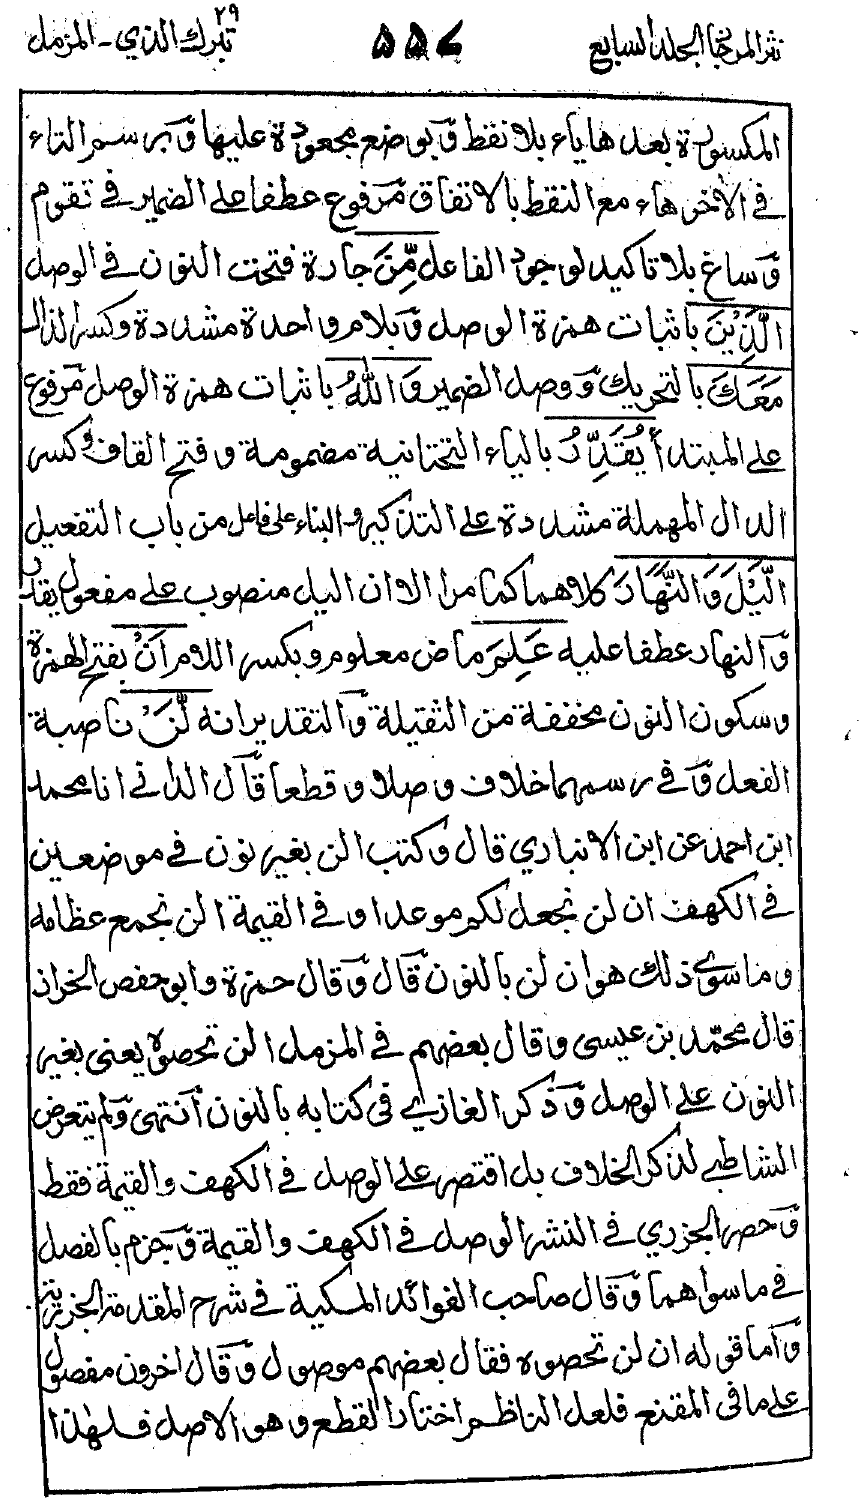 نثر المرجان المجلد السابع ۵۵۷ تبرك الذي - المزمل ۲۹
المكسورة بعدها ياء بلا نقط وَبوضع مجعودة عليها وَبرسم التاء
في الأخر هاء مع النقط بالاتفاق مَرفوع عطفا على الضمير في تقوم
وَساغ بلا تاكيد لوجود الفاعل مِّنَ جارة فتحت النون في الوصل
الَّذِيْنَ باثبات همزة الوصل وَبلام واحدة مشددة وكسر الذال
مَعَكَ بالتحريك وَوصل الضمير وَاللهُ باثبات همزة الوصل مَرفوع
على المبتدأ يُقَدِّرُ بالياء التحتانية مضمومة و فتح القاف وكسر
الدال المهملة مشددة على التذكير والبناء على فاعل من باب التفعيل
الَّيْلَ وَالنَّهَارَ كلاهما كما مر الا ان اليل منصوب على مفعول يقدر
وَالنهار عطفا عليه عَلِمَ ماض معلوم وبكسر اللام اَنْ بفتح الهمزة
وسكون النون مخففة من الثقيلة وَالتقدير انه لَّنْ ناصبة
الفعل وَفي رسمهما خلاف وصلا و قطعا قَال الداني انا محمد
ابن احمد عن ابن الانباري قال وكتب الن بغير نون في موضعين
في الكهف ان لن نجعل لكم موعدا و في القيمة الن نجمع عظامه
وما سوى ذلك هو ان لن بالنون قَال وَقال حمزة وابو حفص الخراز
قال محمّد بن عيسى وقال بعضهم في المزمل الن تحصوه يعني بغير
النون على الوصل وَذكر الغازي في كتابه بالنون اَنتهى وَلم يتعرض
الشاطبي لذكر الخلاف بل اقتصر على الوصل في الكهف والقيمة فقط
وَحصر الجزري في النشر الوصل في الكهف والقيمة وَجزم بالفصل
في ما سواهما وَقال صاحب الفوائد المكية في شرح المقدمة الجزرية
وَاَما قوله ان لن تحصوه فقال بعضهم موصول وَقال اخرون مفصول
على ما في المقنع فلعل الناظم اختار القطع و هو الاصل فلهذا